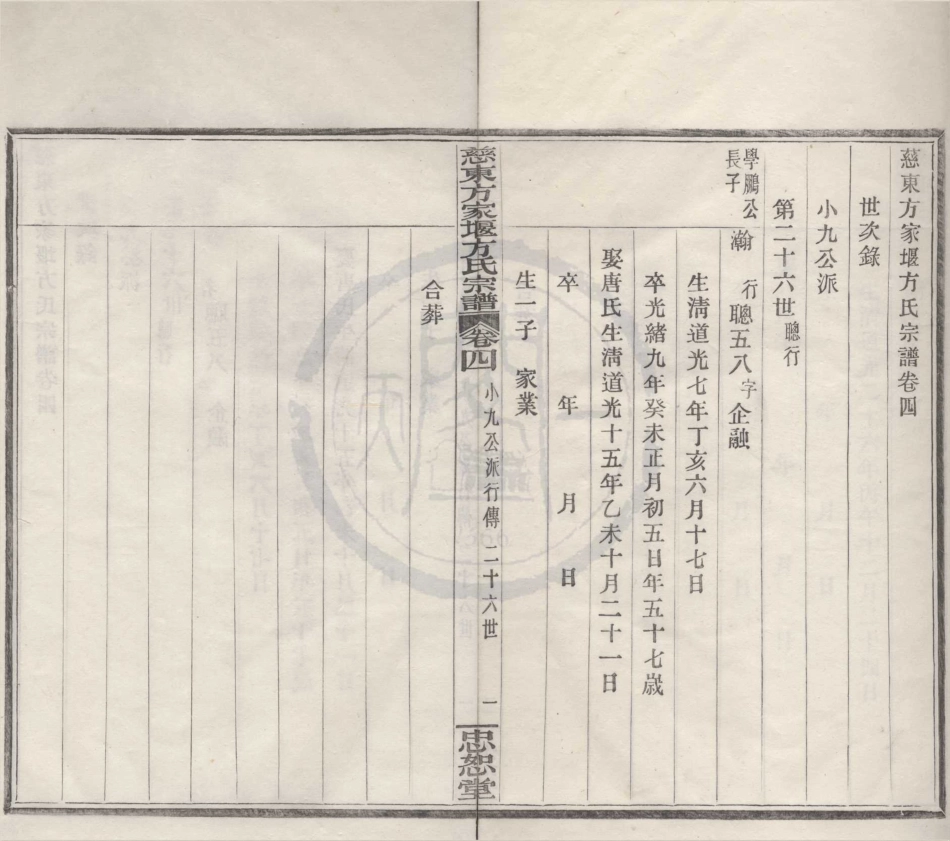 慈東方家堰方氏宗譜卷四
世次錄
小九公派
第二十六世聰行
學鵬公長子 瀚 行聰五八字企融
生淸道光七年丁亥六月十七日
卒光緒九年癸未正月初五日年五十七歲
娶唐氏生淸道光十五年乙未十月二十一日
卒 年 月 日
生一子 家業
慈東方家堰方氏宗譜 卷四 小九公派行傳 二十六世 一 忠恕堂
合葬